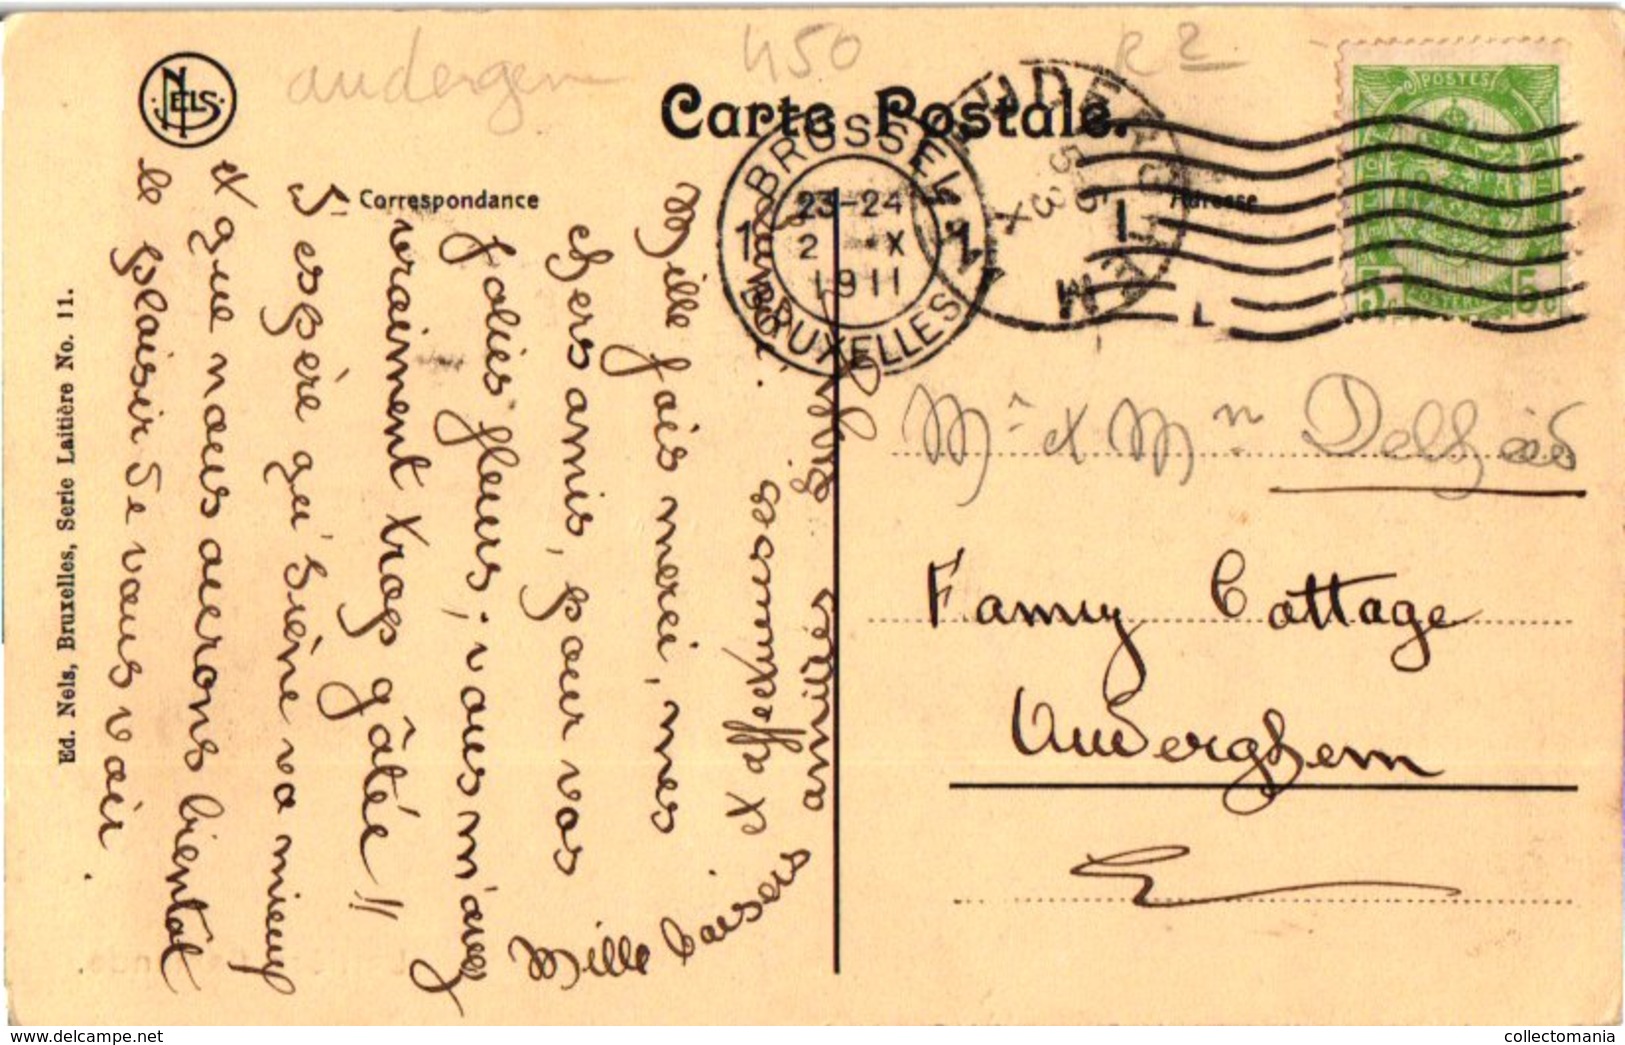 audergem
450
R 2
NELS
Carte Postale.
Correspondance
Adresse
BRUSSEL
1 23-24 1
2 X
1911
BRUXELLES
POSTES
5c 5c
Ed. Nels, Bruxelles, Serie Laitière No. 11.
Mille fois merci, mes
chers amis, pour vos
jolies fleurs ; vous m'avez
vraiment trop gâtée !!
J'espère qu'Irène va mieux
et que nous aurons bientôt
le plaisir de vous voir
Mille baisers
et affectueuses
amitiés
Mr et Mm
Fanny Cottage
Auderghem
collectomania